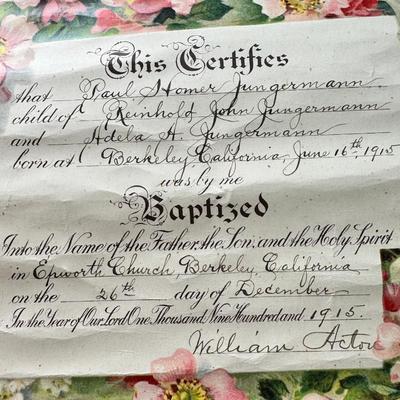 This Certifies
that Paul Homer Jungermann
child of Reinhold John Jungermann
and Adela A. Jungermann
born at Berkeley, California, June 16th, 1915
was by me
Baptized
Into the Name of the Father, the Son, and the Holy Spirit
in Epworth Church, Berkeley, California
on the 26th day of December
In the Year of Our Lord One Thousand Nine Hundred and 1915.
William Acton